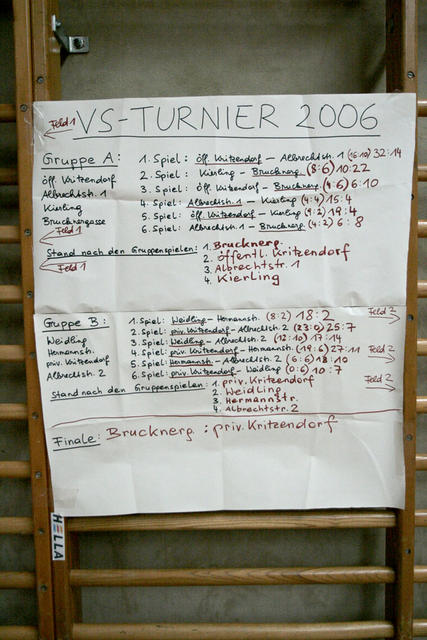 Feld 1
VS-TURNIER 2006
Gruppe A:
öff. Kritzendorf
Albrechtstr. 1
Kierling
Brucknergasse
Feld 1
1. Spiel: öff. Kritzendorf - Albrechtstr. 1 (16:10) 32:14
2. Spiel: Kierling - Brucknerg. (8:6) 10:22
3. Spiel: öff. Kritzendorf - Brucknerg. (4:6) 6:10
4. Spiel: Albrechtstr. 1 - Kierling (4:4) 15:4
5. Spiel: öff. Kritzendorf - Kierling (9:2) 19:4
6. Spiel: Albrechtstr. 1 - Brucknerg. (4:2) 6:8
Stand nach den Gruppenspielen:
Feld 1
1. Brucknerg.
2. öffentl. Kritzendorf
3. Albrechtstr. 1
4. Kierling
Gruppe B:
Weidling
Hermannstr.
priv. Kritzendorf
Albrecht. 2
1. Spiel: Weidling - Hermannstr. (8:2) 18:2 Feld 2
2. Spiel: priv. Kritzendorf - Albrechtstr. 2 (23:0) 25:7
3. Spiel: Weidling - Albrechtstr. 2 (12:10) 17:14
4. Spiel: priv. Kritzendorf - Hermannstr. (19:6) 27:11 Feld 2
5. Spiel: Hermannstr. - Albrechtstr. 2 (6:6) 18:10
6. Spiel: priv. Kritzendorf - Weidling (0:6) 10:7
Feld 2
Stand nach den Gruppenspielen:
1. priv. Kritzendorf
2. Weidling
3. Hermannstr.
4. Albrechtstr. 2
Finale: Brucknerg. : priv. Kritzendorf
HELLA